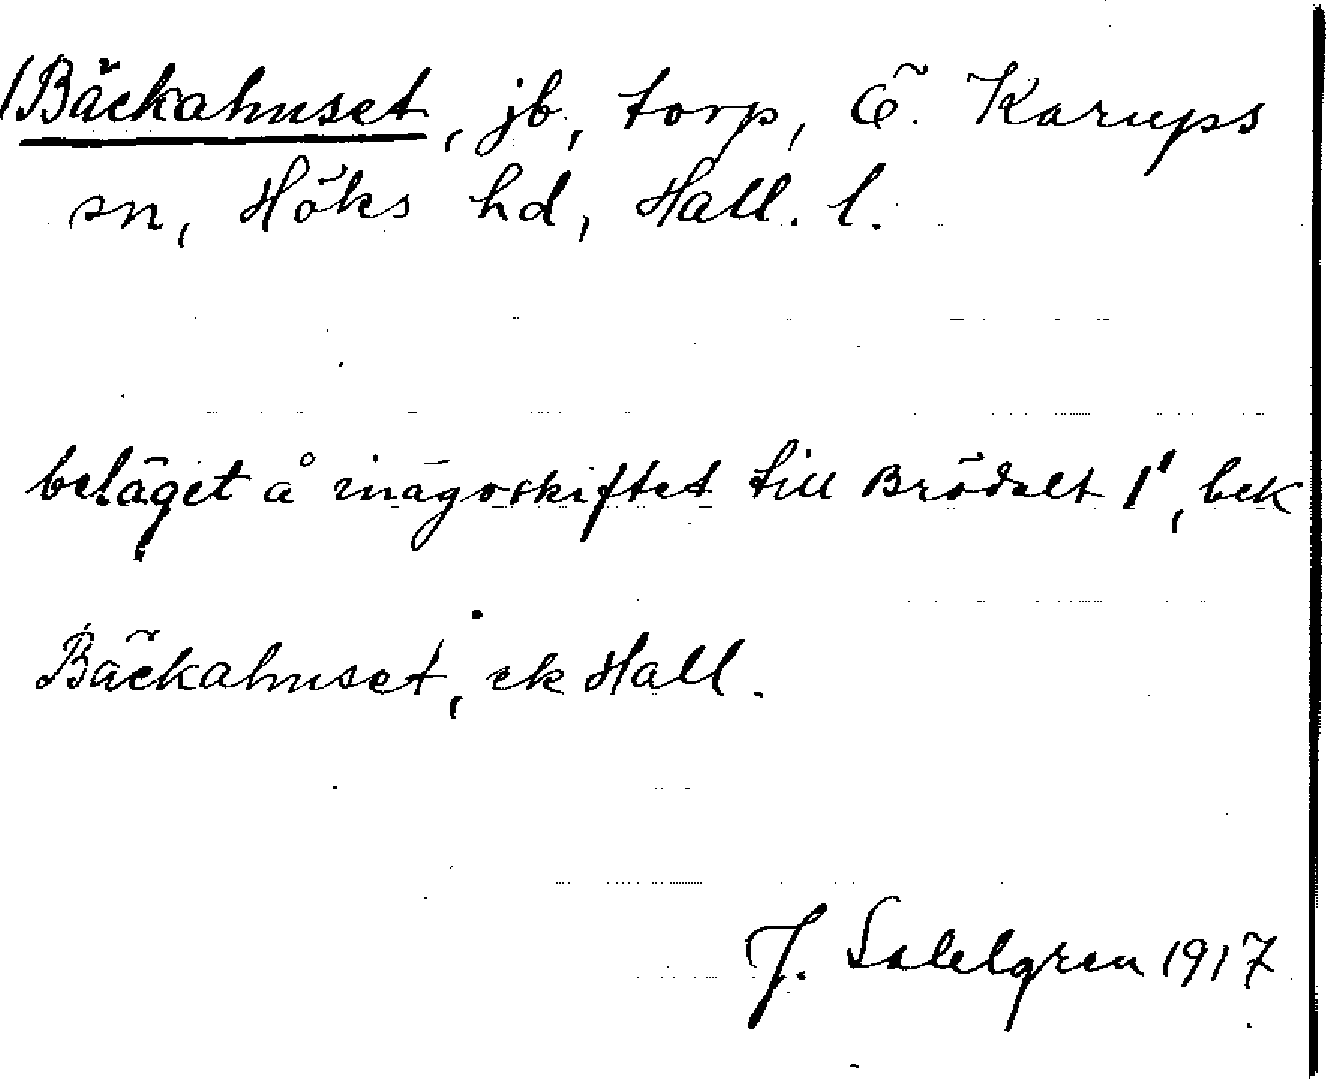 /Bäckahuset, jb, torp, Ö. Karups
sn, Höks hd, Hall. l.
beläget å inägoskiftet till Brödalt 1¹, bek
Bäckahuset, ek Hall.
J. Sahlgren 1917